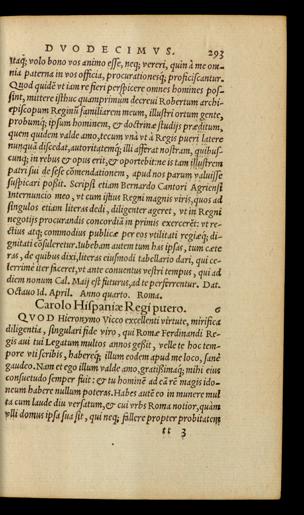 DVODECIMVS. 293
Itaq; volo bono vos animo esse, neq; vereri, quin à me om-
nia paterna in vos officia, procurationesq; proficiscantur.
Quod quidē vt iam re fieri perspicere omnes homines pos-
sint, mittere isthuc quamprimum decreui Robertum archi-
episcopum Reginū familiarem meum, illustri ortum gente,
probumq; ipsum hominem, & doctrinæ studijs præditum,
quem quidem valde amo, tecum vnà vt à Regis pueri latere
nunquā discedat, autoritatemq; illi afferat nostram, quibus-
cunq; in rebus & opus erit, & oportebit: ne is tam illustrem
patrisui de sese cōmendationem, apud nos parum valuisse
suspicari possit. Scripsi etiam Bernardo Cantori Agriensi
Internuncio meo, vt cum istius Regni magnis viris, quos ad
singulos etiam literas dedi, diligenter ageret, vt in Regni
negotijs procurandis concordiā in primis exercerēt: vt re-
ctius atq; commodius publicæ per eos vtilitati regiæq; di-
gnitati cōsuleretur. Iubebam autem tum has ipsas, tum cæte
ras, de quibus dixi, literas eiusmodi tabellario dari, qui ce-
lerrimè iter faceret, vt ante conuentus vestri tempus, qui ad
diem nonum Cal. Maij est futurus, ad te perferrentur. Dat.
Octauo Id. April. Anno quarto. Roma.
Carolo Hispaniæ Regi puero. 6
QVOD Hieronymo Vicco excellenti virtute, mirifica
diligentia, singulari fide viro, qui Romæ Ferdinandi Re-
gis aui tui Legatum multos annos gessit, velle te hoc tem-
pore vti scribis, habereq; illum eodem apud me loco, sanè
gaudeo. Nam et ego illum valde amo, gratissimaq; mihi eius
consuetudo semper fuit: & tu hominē ad eā rē magis ido-
neum habere nullum poteras. Habes autē eo in munere mul
ta cum laude diu versatum, & cui vrbs Roma notior, quàm
vlli domus ipsa sua sit, qui neq; fallere propter probitatem
tt 3